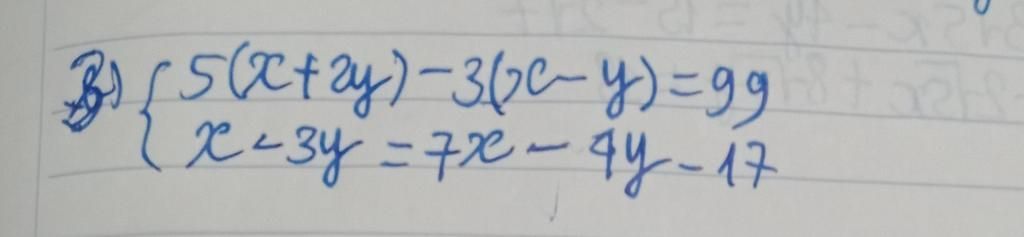 3) { 5(x+2y)-3(x-y)=99
x-3y=7x-4y-17